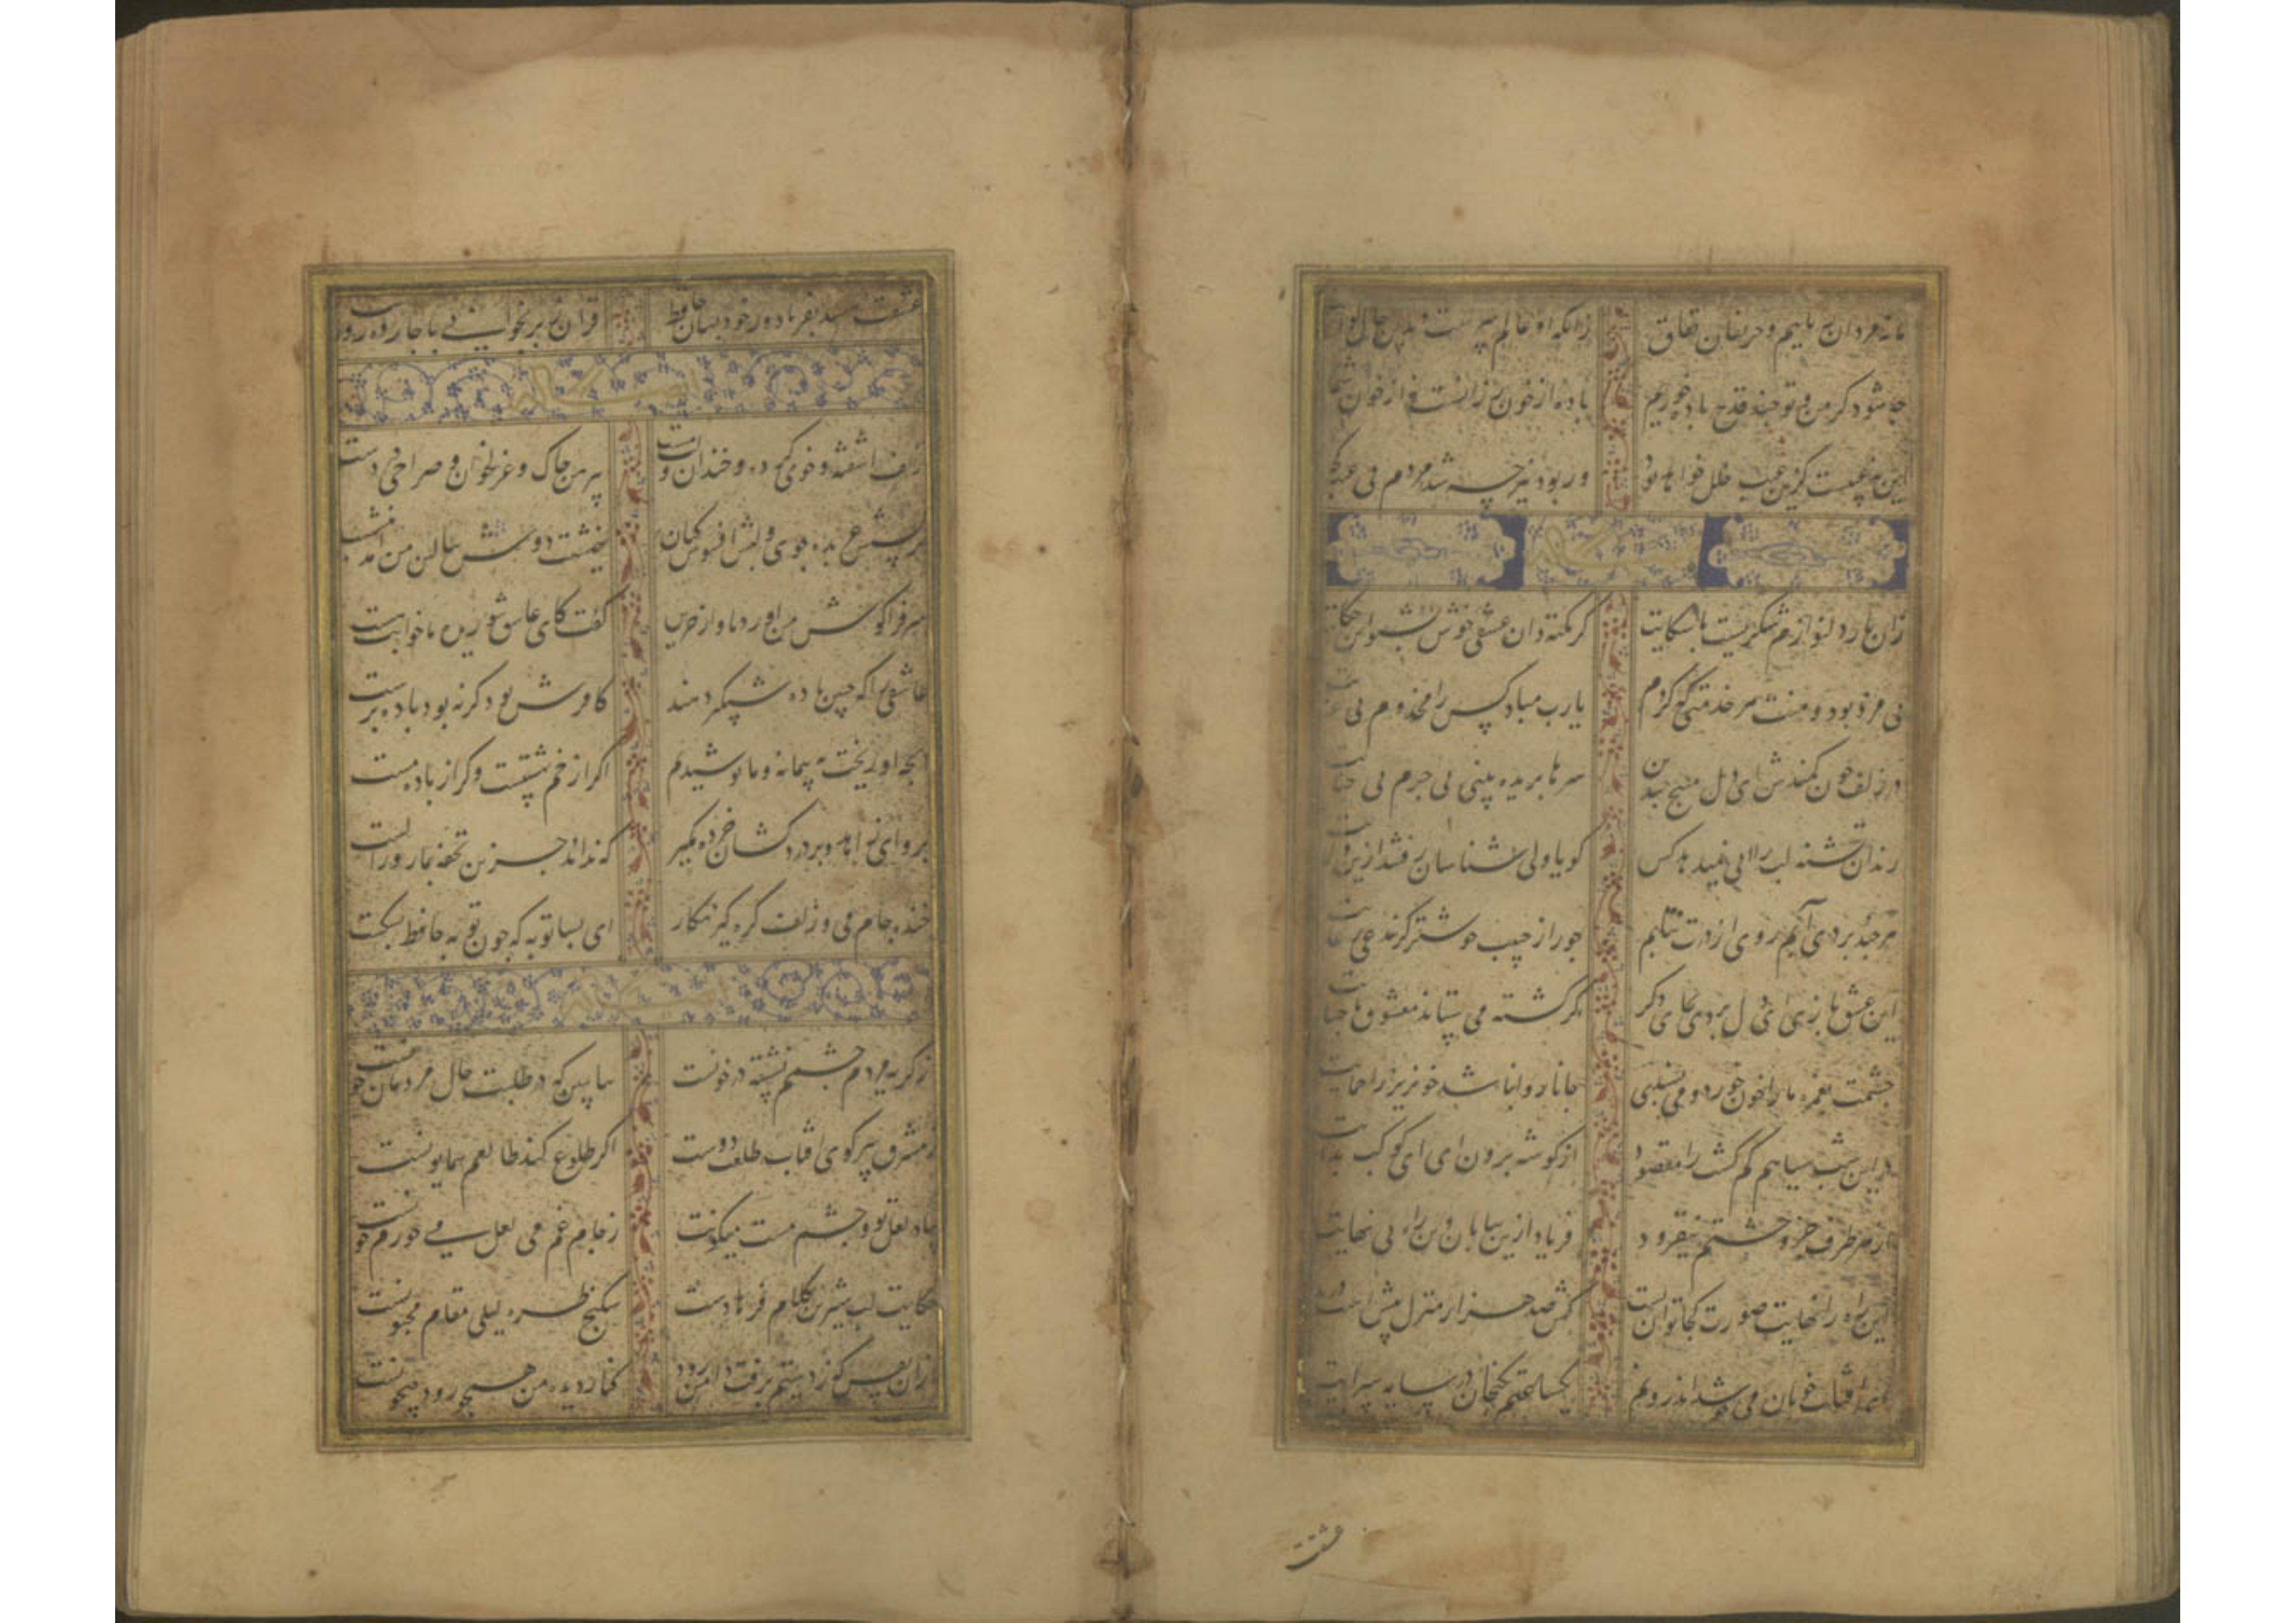 ما نه مردان ریاییم و حریفان نفاق زانکه او عالم سرست بدین حال گوا
چه شود گر من و تو چند قدح باده خوریم باده از خون رزانست نه از خون شما
این چه عیبست کزین عیب خلل خواهد بود ور بود نیز چه شد مردم بی عیب کجا
زان یار دلنوازم شکریست با شکایت گر نکته دان عشقی خوش بشنو این حکایت
بی مزد بود و منت هر خدمتی که کردم یا رب مباد کس را مخدوم بی
در زلف چون کمندش ای دل مپیچ کانجا سرها بریده بینی بی جرم بی جنایت
رندان تشنه لب را آبی نمیدهد کس گویا ولی شناسان رفتند ازین ولایت
هرچند بردی آبم روی از درت نتابم جور از حبیب خوشتر کز مدعی رعایت
این عشق بازی ای دل بردی بجای دگر گر کشته می ستاند معشوق
چشمت بغمزه ما را خون خورد و می پسندی جانا روا نباشد خونریز را حمایت
در این شب سیاهم گم گشت راه مقصود از گوشه برون ای ای کوکب هدایت
از هر طرف جز وحشتم نیفزود فریاد ازین بیابان وین راه بی نهایت
این راه را نهایت صورت کجا توان بست کش صد هزار منزل بیش است
ای افتاب خوبان می جوشد اندرونم یکساعتم بگنجان در سایه
عشقت
عشقت رسد بفریاد ور خود بسان حافظ قران ز بر بخوانی با چارده روایت
زلف اشفته و خوی کرده و خندان لب و مست پیرهن چاک و غزلخوان و صراحی در دست
نرگسش عربده جوی و لبش افسوس کنان نیمشب دوش ببالین من امد بنشست
سر فرا گوش من اورد باواز حزین گفت کای عاشق شوریده من خوابت هست
عاشقی را که چنین باده شبگیر دهند کافر عشق بود گر نبود باده پرست
انچه او ریخت به پیمانه ما نوشیدیم اگر از خمر بهشتست و گر از باده مست
برو ای زاهد و بر دردکشان خرده مگیر که ندادند جز این تحفه بما روز الست
خنده جام می و زلف گره گیر نگار ای بسا توبه که چون توبه حافظ بشکست
ز گریه مردم چشمم نشسته در خونست ببین که در طلبت حال مردمان چونست
ز مشرق سر کوی افتاب طلعت دوست اگر طلوع کند طالعم همایونست
بیاد لعل تو و چشم مست میگونت ز جام غم می لعلی که میخورم خونست
حکایت لب شیرین کلام فرهادست شکنج طره لیلی مقام مجنونست
از ان نفس که ز دستم برفت رود کنار دیده من همچو رود جیحونست